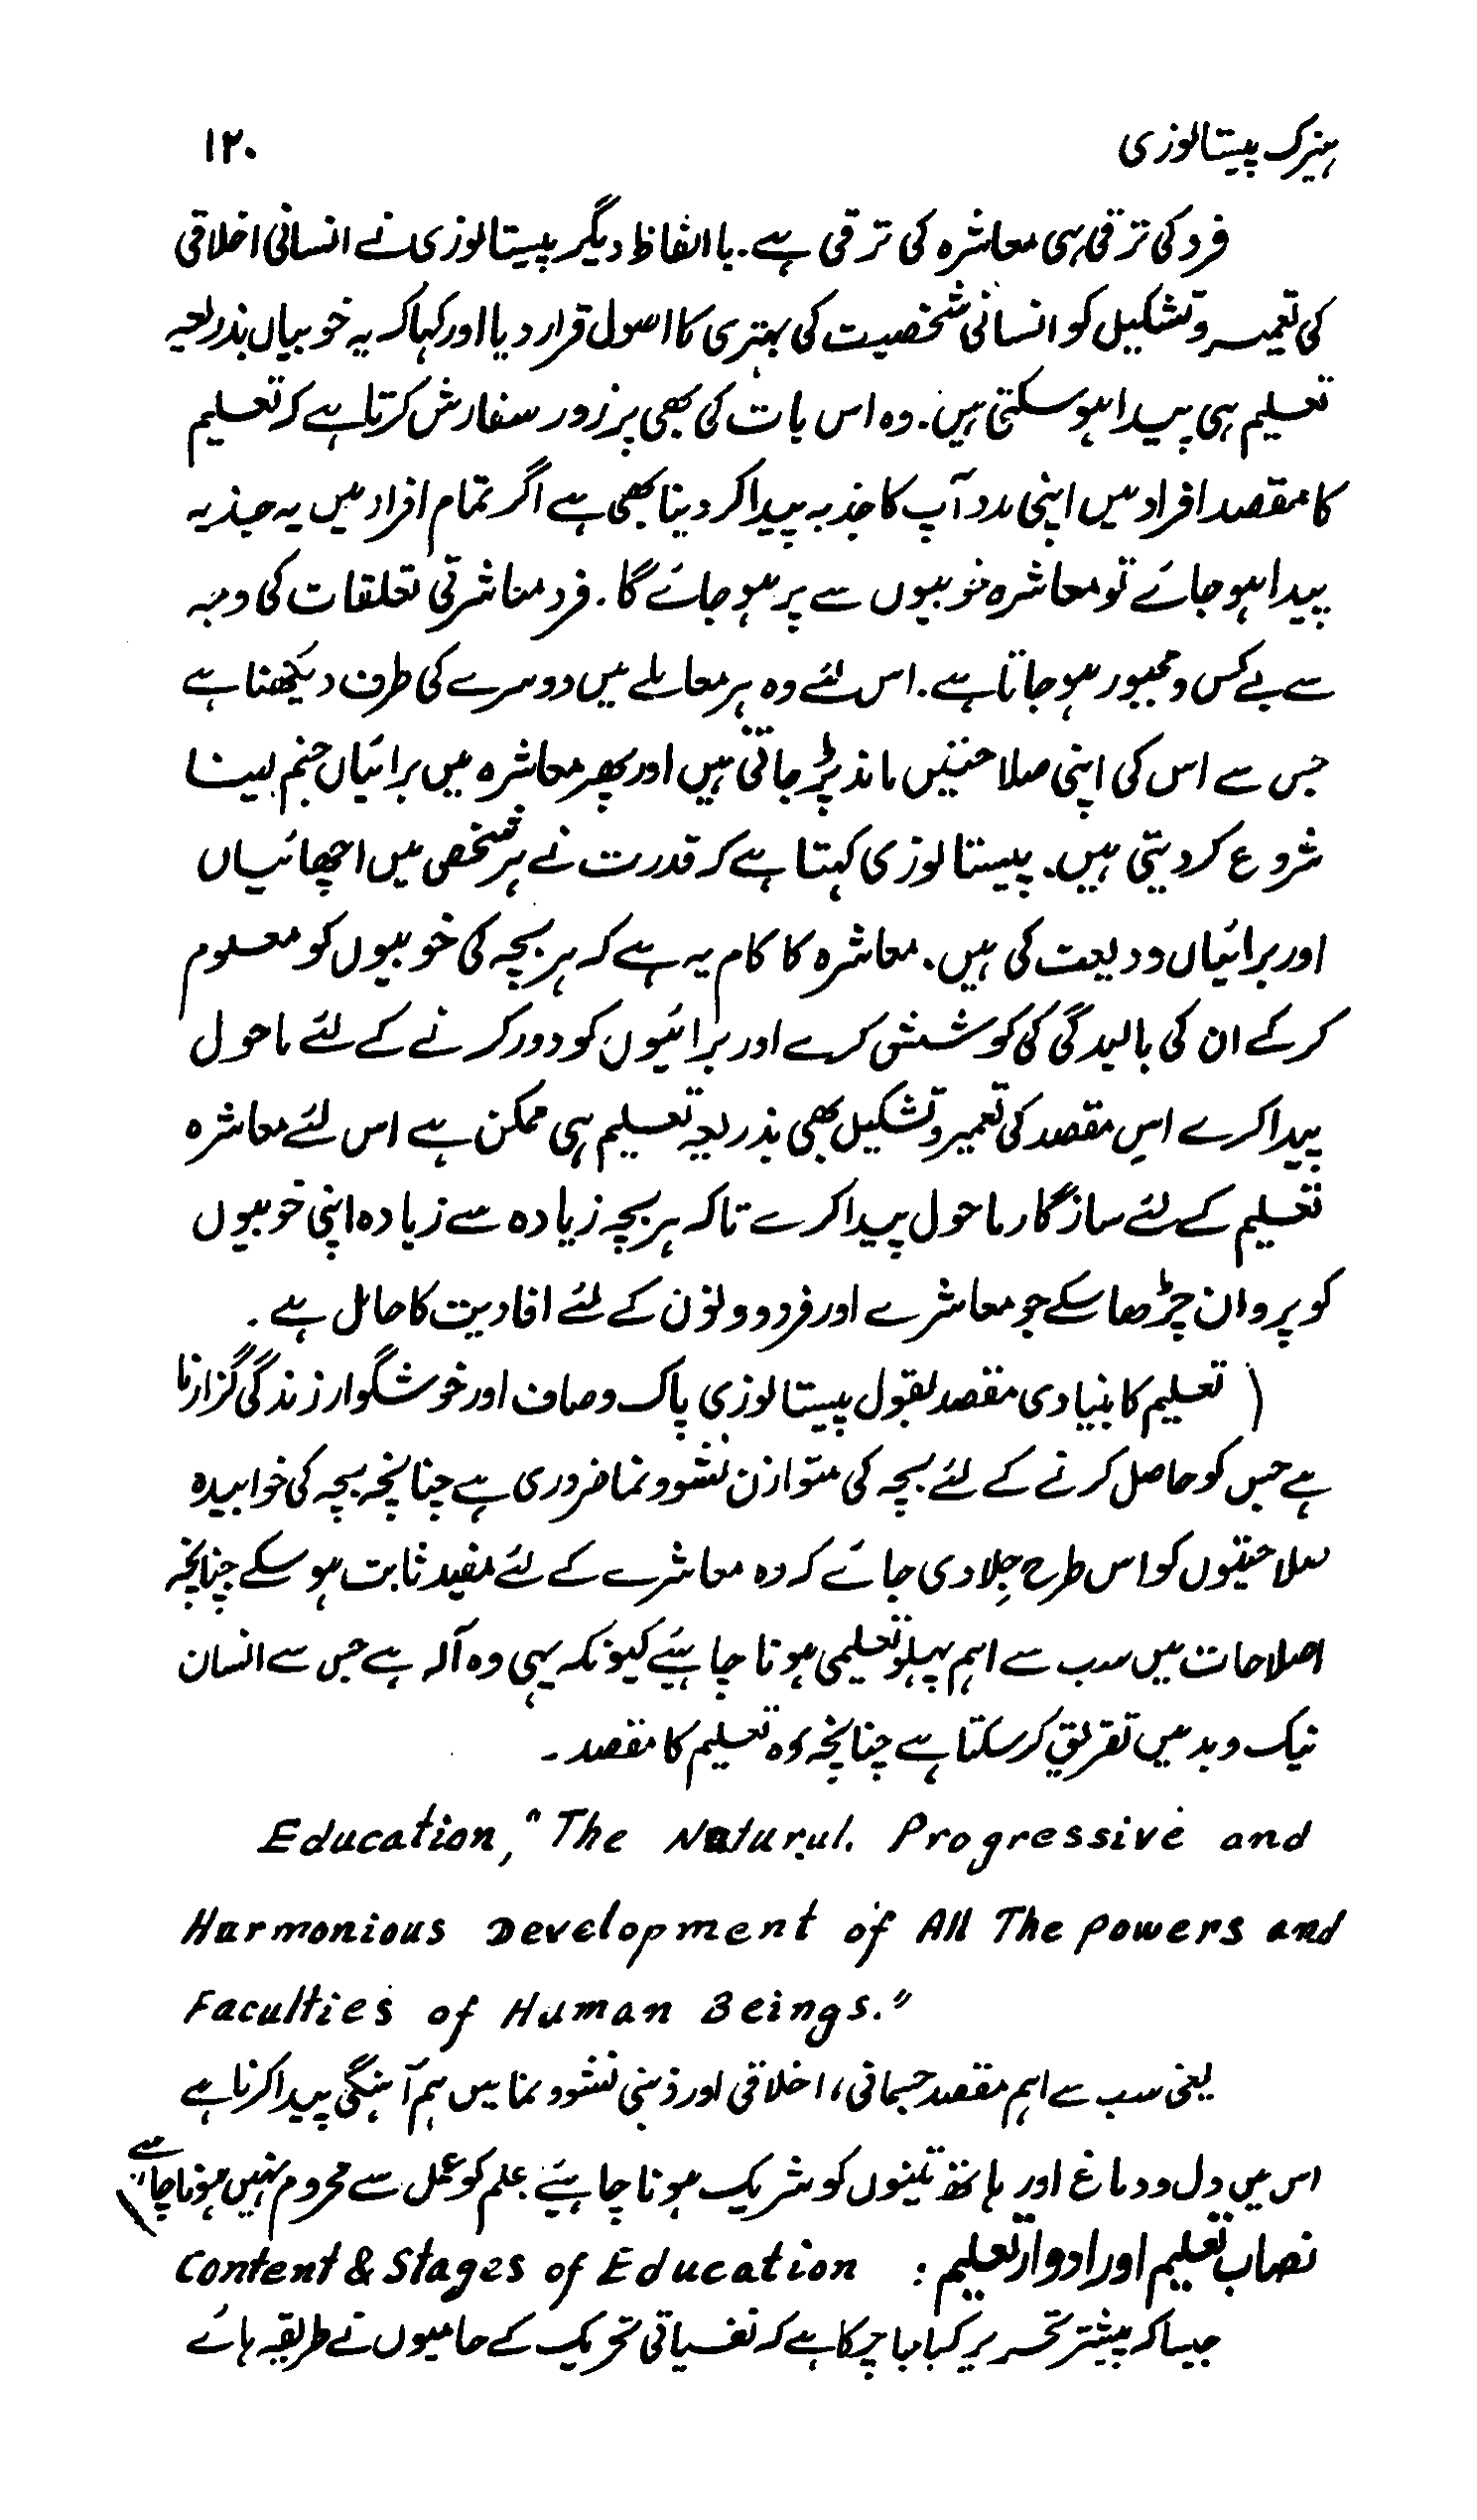 ہنرک پیستالوزی ۱۲۰
فرد کی ترقی ہی معاشرہ کی ترقی ہے۔ با الفاظ دیگر پیستالوزی نے انسانی اخلاقی
کی تعمیر و تشکیل کو انسانی شخصیت کی بہتری کا اصول قرار دیا اور کہا کہ یہ خوبیاں بذریعہ
تعلیم ہی پیدا ہو سکتی ہیں۔ وہ اس بات کی بھی پرزور سفارش کرتا ہے کہ تعلیم
کا مقصد افراد میں اپنی مدد آپ کا جذبہ پیدا کر دینا بھی ہے اگر تمام افراد میں یہ جذبہ
پیدا ہو جائے تو معاشرہ خوبیوں سے پر ہو جائے گا۔ فرد معاشرتی تعلقات کی وجہ
سے بے کس و مجبور ہو جاتا ہے۔ اس لئے وہ ہر معاملے میں دوسرے کی طرف دیکھتا ہے
جس سے اس کی اپنی صلاحیتیں ماند پڑ جاتی ہیں اور پھر معاشرہ میں برائیاں جنم لینا
شروع کر دیتی ہیں۔ پیستالوزی کہتا ہے کہ قدرت نے ہر شخص میں اچھائیاں
اور برائیاں ودیعت کی ہیں۔ معاشرہ کا کام یہ ہے کہ ہر بچہ کی خوبیوں کو معلوم
کر کے ان کی بالیدگی کی کوشش کرے اور برائیوں کو دور کرنے کے لئے ماحول
پیدا کرے اس مقصد کی تعمیر و تشکیل بھی بذریعہ تعلیم ہی ممکن ہے اس لئے معاشرہ
تعلیم کے لئے سازگار ماحول پیدا کرے تاکہ ہر بچہ زیادہ سے زیادہ اپنی خوبیوں
کو پروان چڑھا سکے جو معاشرے اور فرد دونوں کے لئے افادیت کا حامل ہے۔
( تعلیم کا بنیادی مقصد بقول پیستالوزی پاک و صاف اور خوشگوار زندگی گزارنا
ہے جس کو حاصل کرنے کے لئے بچہ کی متوازن نشوونما ضروری ہے چنانچہ بچہ کی خوابیدہ
صلاحیتوں کو اس طرح جِلا دی جائے کہ وہ معاشرے کے لئے مفید ثابت ہو سکے چنانچہ
اصلاحات میں سب سے اہم پہلو تعلیمی ہونا چاہیئے کیونکہ یہی وہ آلہ ہے جس سے انسان
نیک و بد میں تفریق کر سکتا ہے چنانچہ وہ تعلیم کا مقصد۔
Education, "The Natural. Progressive and
Harmonious Development of All The Powers and
Faculties of Human Beings."
یعنی سب سے اہم مقصد جسمانی، اخلاقی اور ذہنی نشوونما میں ہم آہنگی پیدا کرنا ہے
اس میں دل و دماغ اور ہاتھ تینوں کو شریک ہونا چاہیئے علم کو عمل سے محروم نہیں ہونا چاہیے)
نصاب تعلیم اور ادوار تعلیم : Content & Stages of Education
جیسا کہ پیشتر تحریر کیا جا چکا ہے کہ نفسیاتی تحریک کے حامیوں نے طریقہ ہائے